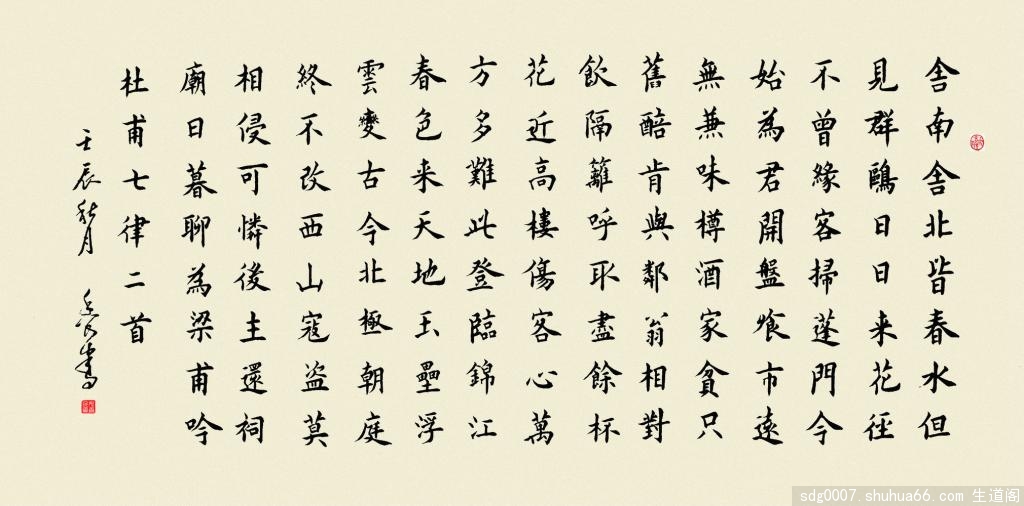 舍南舍北皆春水但
見群鷗日日来花径
不曾緣客掃蓬門今
始為君開盤飧市遠
無兼味樽酒家貧只
舊醅肯與鄰翁相對
飲隔籬呼取盡餘杯
花近高樓傷客心萬
方多難此登臨錦江
春色来天地玉壘浮
雲變古今北極朝庭
終不改西山寇盗莫
相侵可憐後主還祠
廟日暮聊為梁甫吟
杜甫七律二首
壬辰秋月 書
sdg0007.shuhua66.com 生道阁